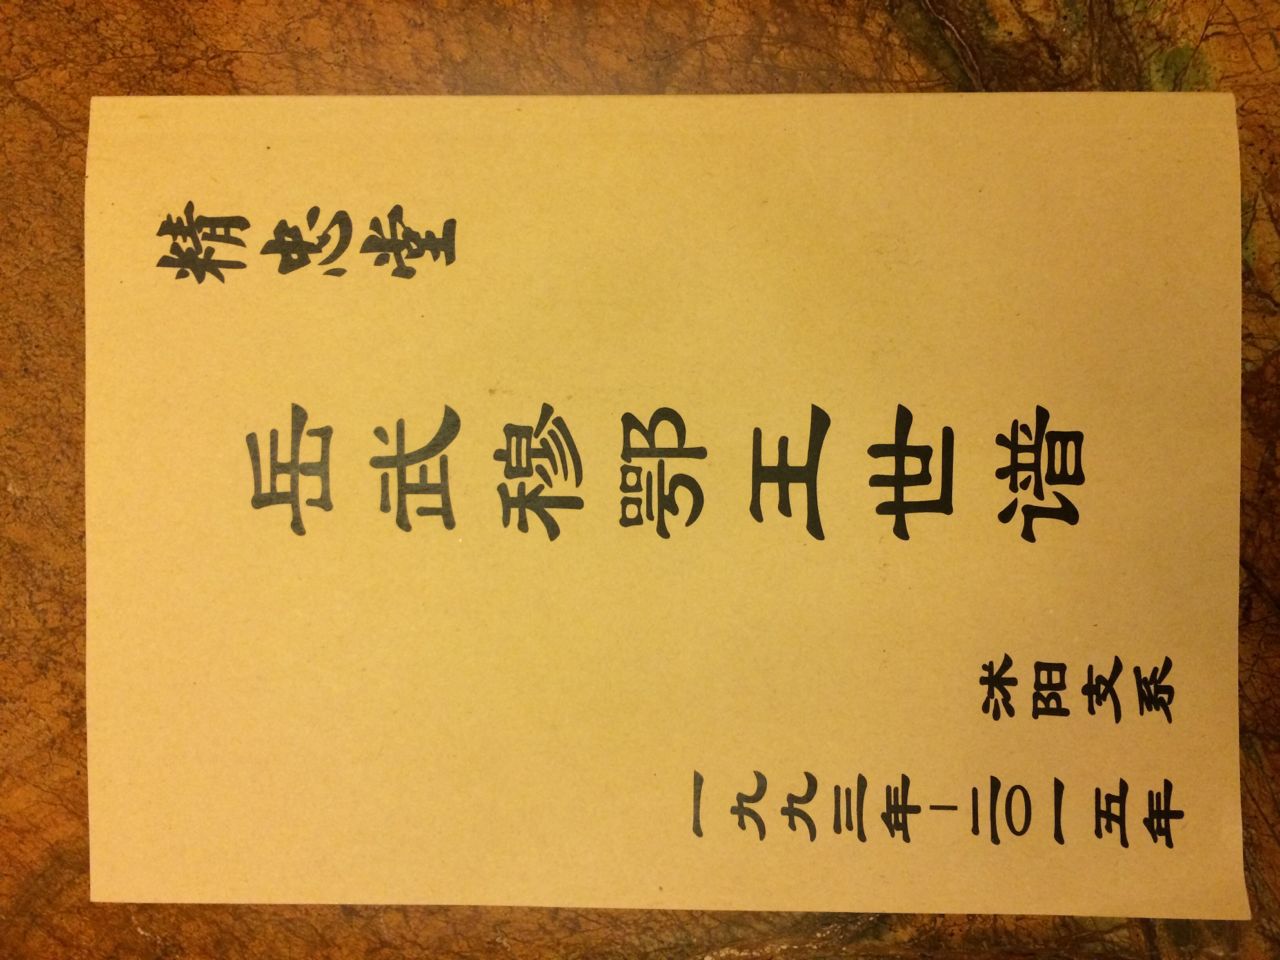 精忠堂
岳武穆鄂王世谱
沭阳支系
一九九三年-二〇一五年